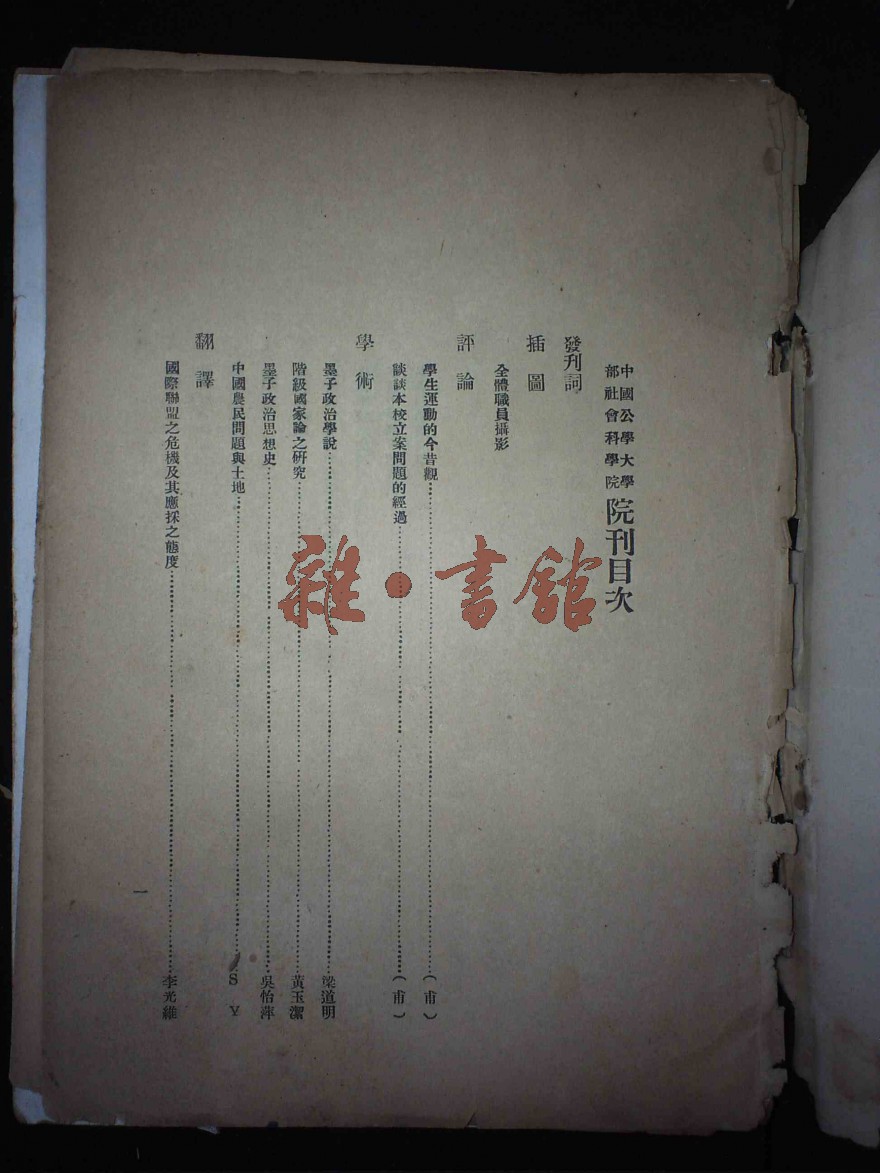 中國公學大學
部社會科學院
院刊目次
發刊詞
插圖
全體職員攝影
評論
學生運動的今昔觀……（甫）
談談本校立案問題的經過……（甫）
學術
墨子政治學說……梁道明
階級國家論之研究……黃玉潔
墨子政治思想史……吳怡萍
中國農民問題與土地……S Y
翻譯
國際聯盟之危機及其應採之態度……李光維
一
雜·書館